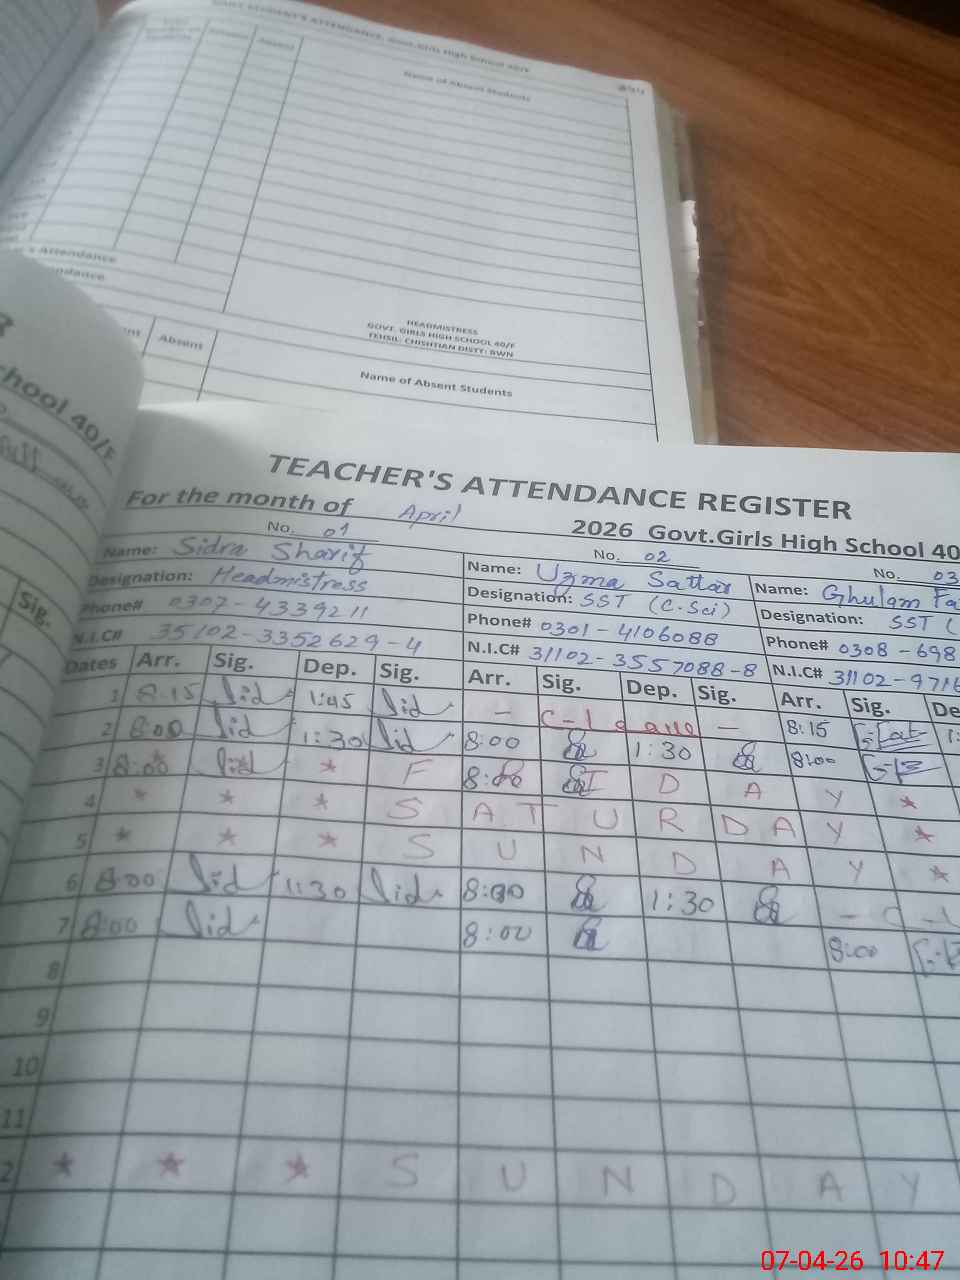 GOVT STUDENT'S ATTENDANCE, Govt.Girls High School 40/F
Absent
Name of Absent Students
's Attendance
endance
HEADMISTRESS
GOVT. GIRLS HIGH SCHOOL 40/F
TEHSIL: CHISHTIAN DISTT: BWN
Absent
Name of Absent Students
chool 40/F
Sig.
TEACHER'S ATTENDANCE REGISTER
For the month of April 2026 Govt.Girls High School 40
No. 01 No. 02 No. 03
Name: Sidra Sharif Name: Uzma Sattar Name: Ghulam Fa
Designation: Headmistress Designation: SST (C.Sci) Designation: SST (
Phone# 0307-4339211 Phone# 0301-4106088 Phone# 0308-698
N.I.C# 35102-3352629-4 N.I.C# 31102-3557088-8 N.I.C# 31102-9716
Dates Arr. Sig. Dep. Sig. Arr. Sig. Dep. Sig. Arr. Sig. De
1 8:15 Sid 1:45 Sid - C-leave - 8:15 G.Fat 1:
2 8:00 Sid 1:30 Sid 8:00 1:30 8:00
3 8:00 Sid * F 8:00 I D A Y *
4 * * * S A T U R D A Y *
5 * * * S U N D A Y *
6 8:00 Sid 1:30 Sid 8:00 1:30 - C-l
7 8:00 Sid 8:00 8:00
8
9
10
11
2 * * * S U N D A Y
07-04-26 10:47